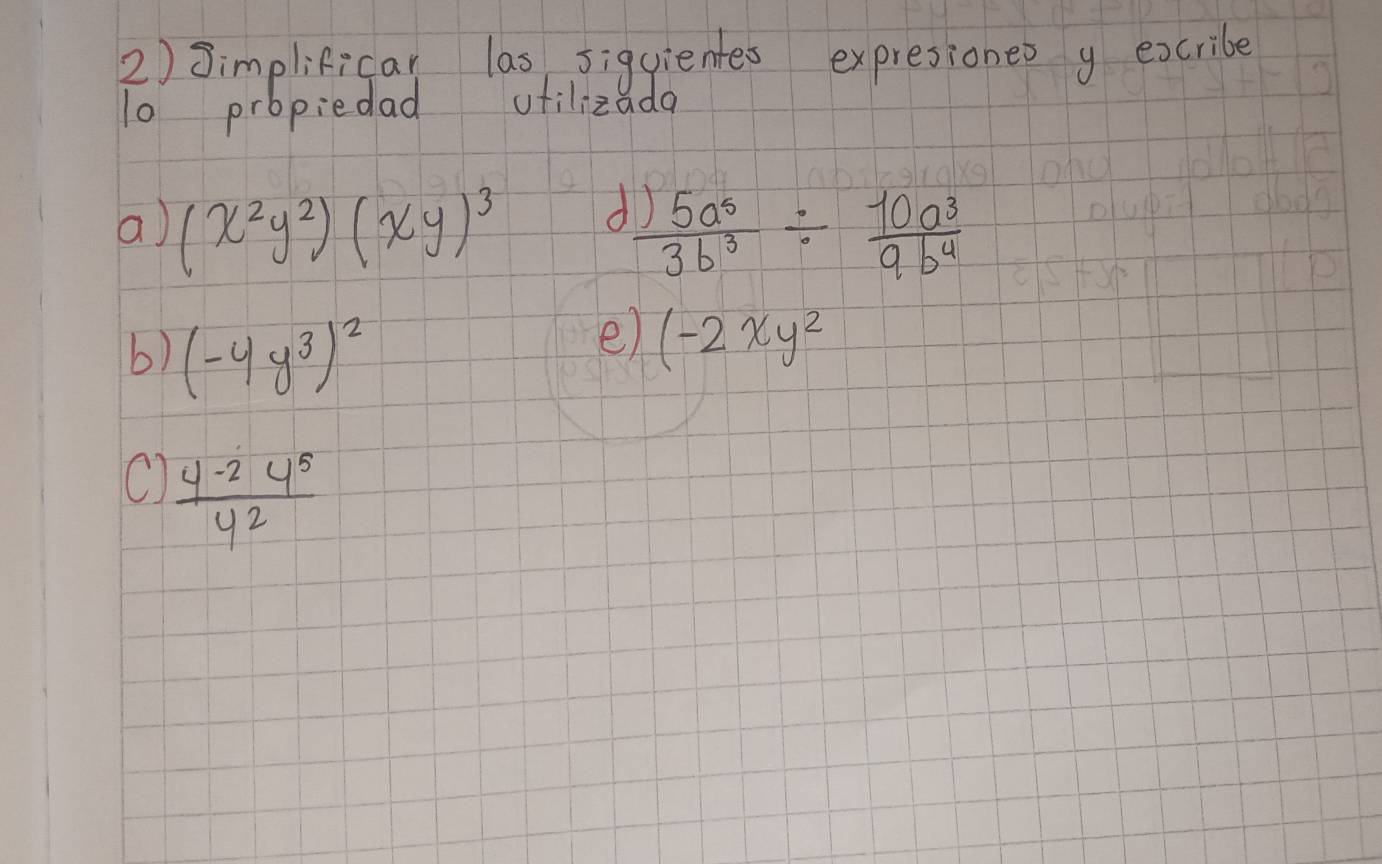 2) Simplificar las siguientes expresiones y escribe
la propiedad utilizada
a) (x²y²) (xy)³
d) 5a⁵/3b³ ÷ 10a³/9b⁴
b) (-4y³)²
e) (-2xy²
c) y-2 y⁵/y²